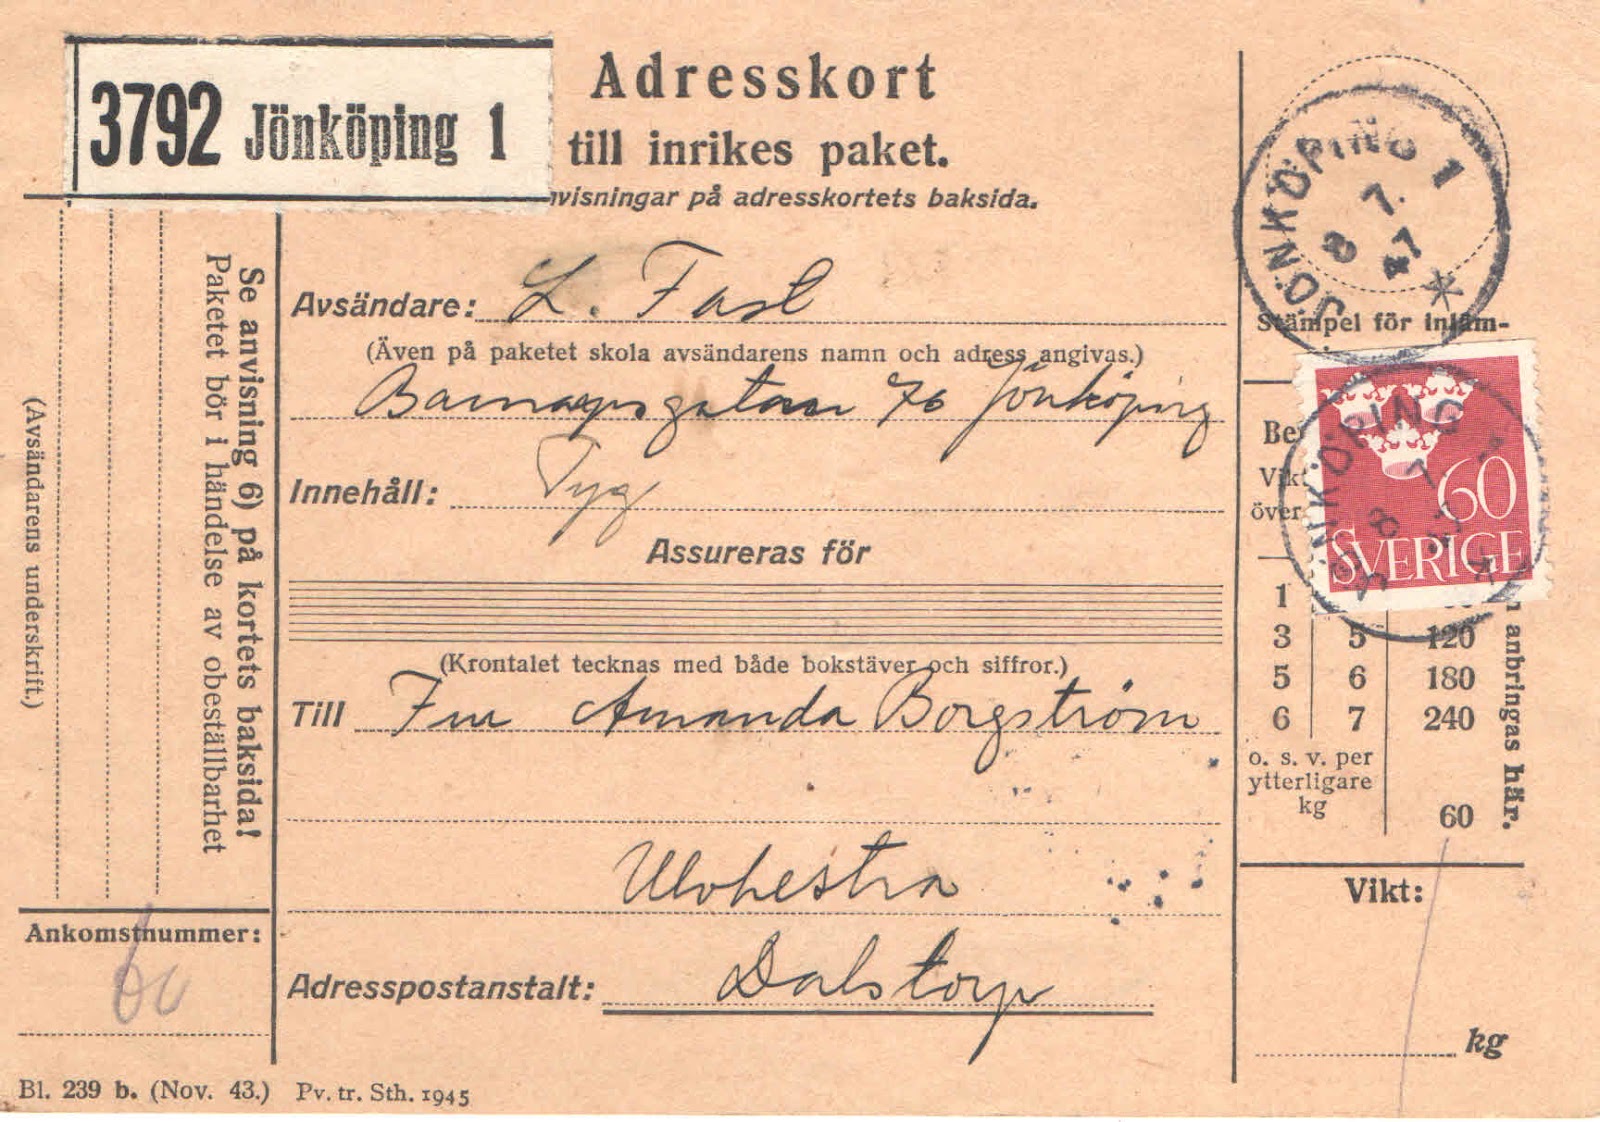 3792 Jönköping 1
Adresskort
till inrikes paket.
nvisningar på adresskortets baksida.
JÖNKÖPING 1
8 7.
47
Stämpel för inläm-
Avsändare: L. Fast
(Även på paketet skola avsändarens namn och adress angivas.)
Barnarpsgatan 76 Jönköping
Innehåll: Tyg
Assureras för
(Krontalet tecknas med både bokstäver och siffror.)
Till Fru Amanda Borgström
Dalstorp
Adresspostanstalt:
Se anvisning 6) på kortets baksida!
Paketet bör i händelse av obeställbarhet
(Avsändarens underskrift.)
Ankomstnummer:
60
60
SVERIGE
JÖNKÖPING
8 7
Vikt
över
1
3 5 120
5 6 180
6 7 240
o. s. v. per
ytterligare
kg
60
anbringas här.
Vikt:
kg
Bl. 239 b. (Nov. 43.) Pv. tr. Sth. 1945